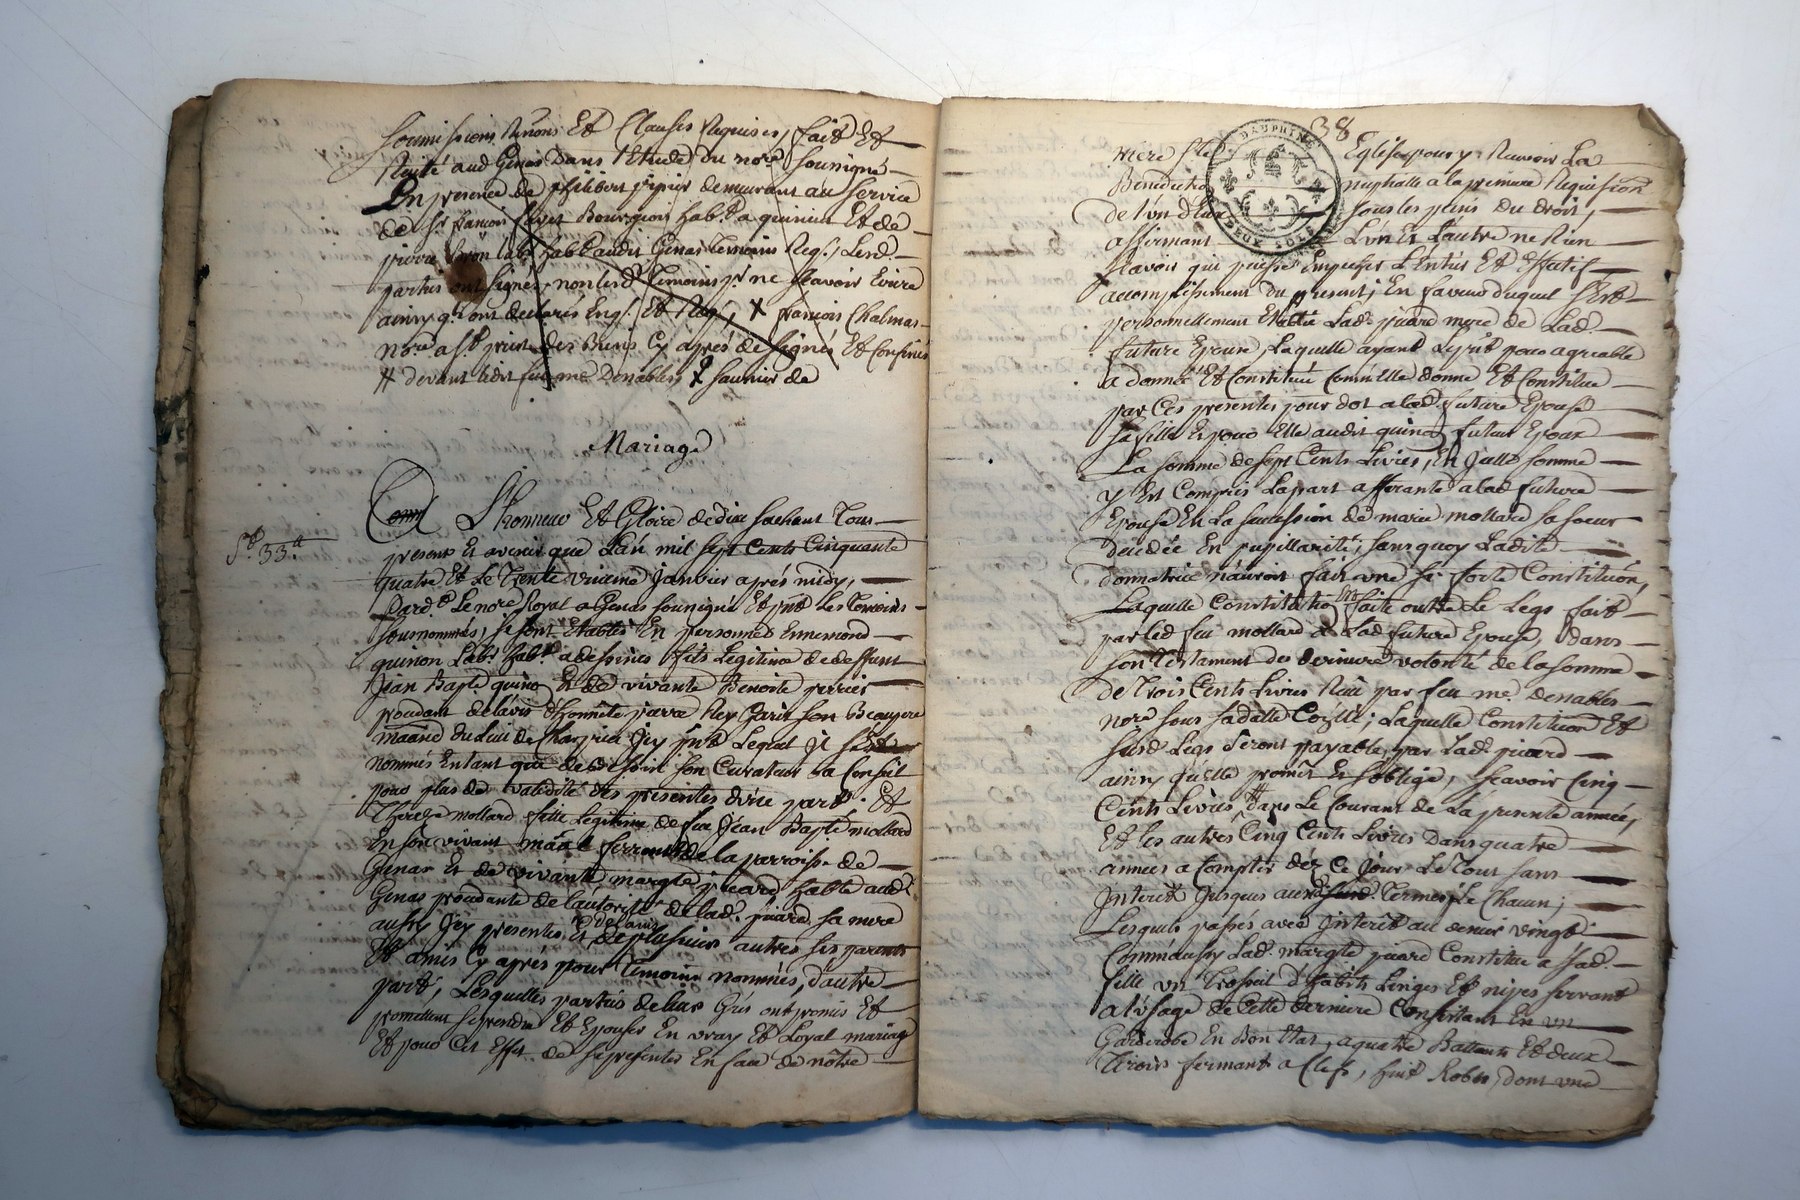 soumissions Renons Et Clauses Requises, fait Et
Recité aud Genas dans l'Etude du nore soussigné
En presence de philibert demeurant au service
de Sr françois Bourgeois habt a quirieu Et de
pierre labr habt audit Genas Temoins Req. Lesd.
parties ont signé, non lesd Temoins pr ne scavoir Ecrire
ainsy q. l'ont declarés Enq. Et Req, X françois Chalmas
nore aff. des Biens Cy aprés designés Et Confinés
# devant feu me Denables, X saunier de
Mariage
A L'honneur Et Gloire de dieu sachent Tous
Sd 33.tt
presents Et avenir que L'an mil sept Cents Cinquante
quatre Et Le Trente unieme Janvier aprés midy,
Pardt Le nore Royal a Genas soussigné Et pnts Les Temoins
sousnommés, se sont Etablis En personnes Ennemond
quinon Labr habt a dessines fils Legitime de deffunt
Jean Bapte quinon Et de vivante Benoite perrier
procedant de l'avis d'honnete pierre Rey Garit son Beaupere
maand du Lieu de Charpieu Jcy pnt Lequel Jl
nommés Entant que de Besoin son Curateur a Conseil
pour plus de validité des presentes d'une part. Et
Therese mollard fille Legitime de feu Jean Bapte mollard
En son vivant maal ferrant de la parroisse de
Genas Et de vivante margte picard habte aud
Genas procedante de l'autorité de lad. picard sa mere
aussy Jcy presente, Et de l'avis de plusieurs autres ses parents
Et amis Cy aprés pour Temoins nommés, d'autre
part, Lesquelles parties de leur Grés ont promis Et
promettent se prendre Et Epouser En vray Et Loyal mariage
Et pour Cet Effet de se presenter En face de nôtre
38
DAUPHINE
DEUX SOLS
mere Ste Eglise pour y Recevoir La
Benediction nuptialle a la premiere Requision
de l'un d'Eux sous les peines du droit,
affirmant L'un Et L'autre ne Rien
scavoir qui puisse Empecher L'Entier Et Effatif
accomplissement du present; En faveur duquel s'Est
personnellement Etablie Lad. picard mere de Lad.
future Epouse, Laquelle ayant Le pnt pour agreable
a donnée Et Constituée Comm'Elle donne Et Constitue
par Ces presentes pour dot a lad. future Epouse
sa fille Et pour Elle audit quinon futur Epoux
La somme de sept Cents Livres, En Jcelle somme
y Est Compris La part afferante a lad future
Epouse En La succession de marie mollard sa soeur
decedée En pupillarité; sans quoy Ladite
donnatrice n'auroit fait une si forte Constitution,
Laquelle Constitution Est faite outre Le Legs fait
par led feu mollard a Lad future Epouse, dans
son Testament de derniere volonté de la somme
de Trois Cents Livres Reçu par feu me denables
nore sous sa datte Cozllé; Laquelle Constitution Et
susd Legs seront payable par Lad. picard
ainsy qu'elle promêt Et s'oblige, scavoir Cinq
Cents Livres, # dans Le Courant de La presente année,
Et Les autres Cinq Cents Livres Dans quatre
annees a Compter dèz Ce Jour, Le Tout sans
Jnterêt Jusques aux susd. Termes Le Chacun;
Lesquels passés avec Jnterêt au denier vingt:
Comm'aussy Lad. margte picard Constitue a sad.
fille un Trosseil d'habits Linges Et nipes servant
a L'usage de Cette derniere Consistant En un
Garderobe En Bon Etat, a quatre Battants Et deux
Tiroirs fermant a Clefs, huit Robes, dont une